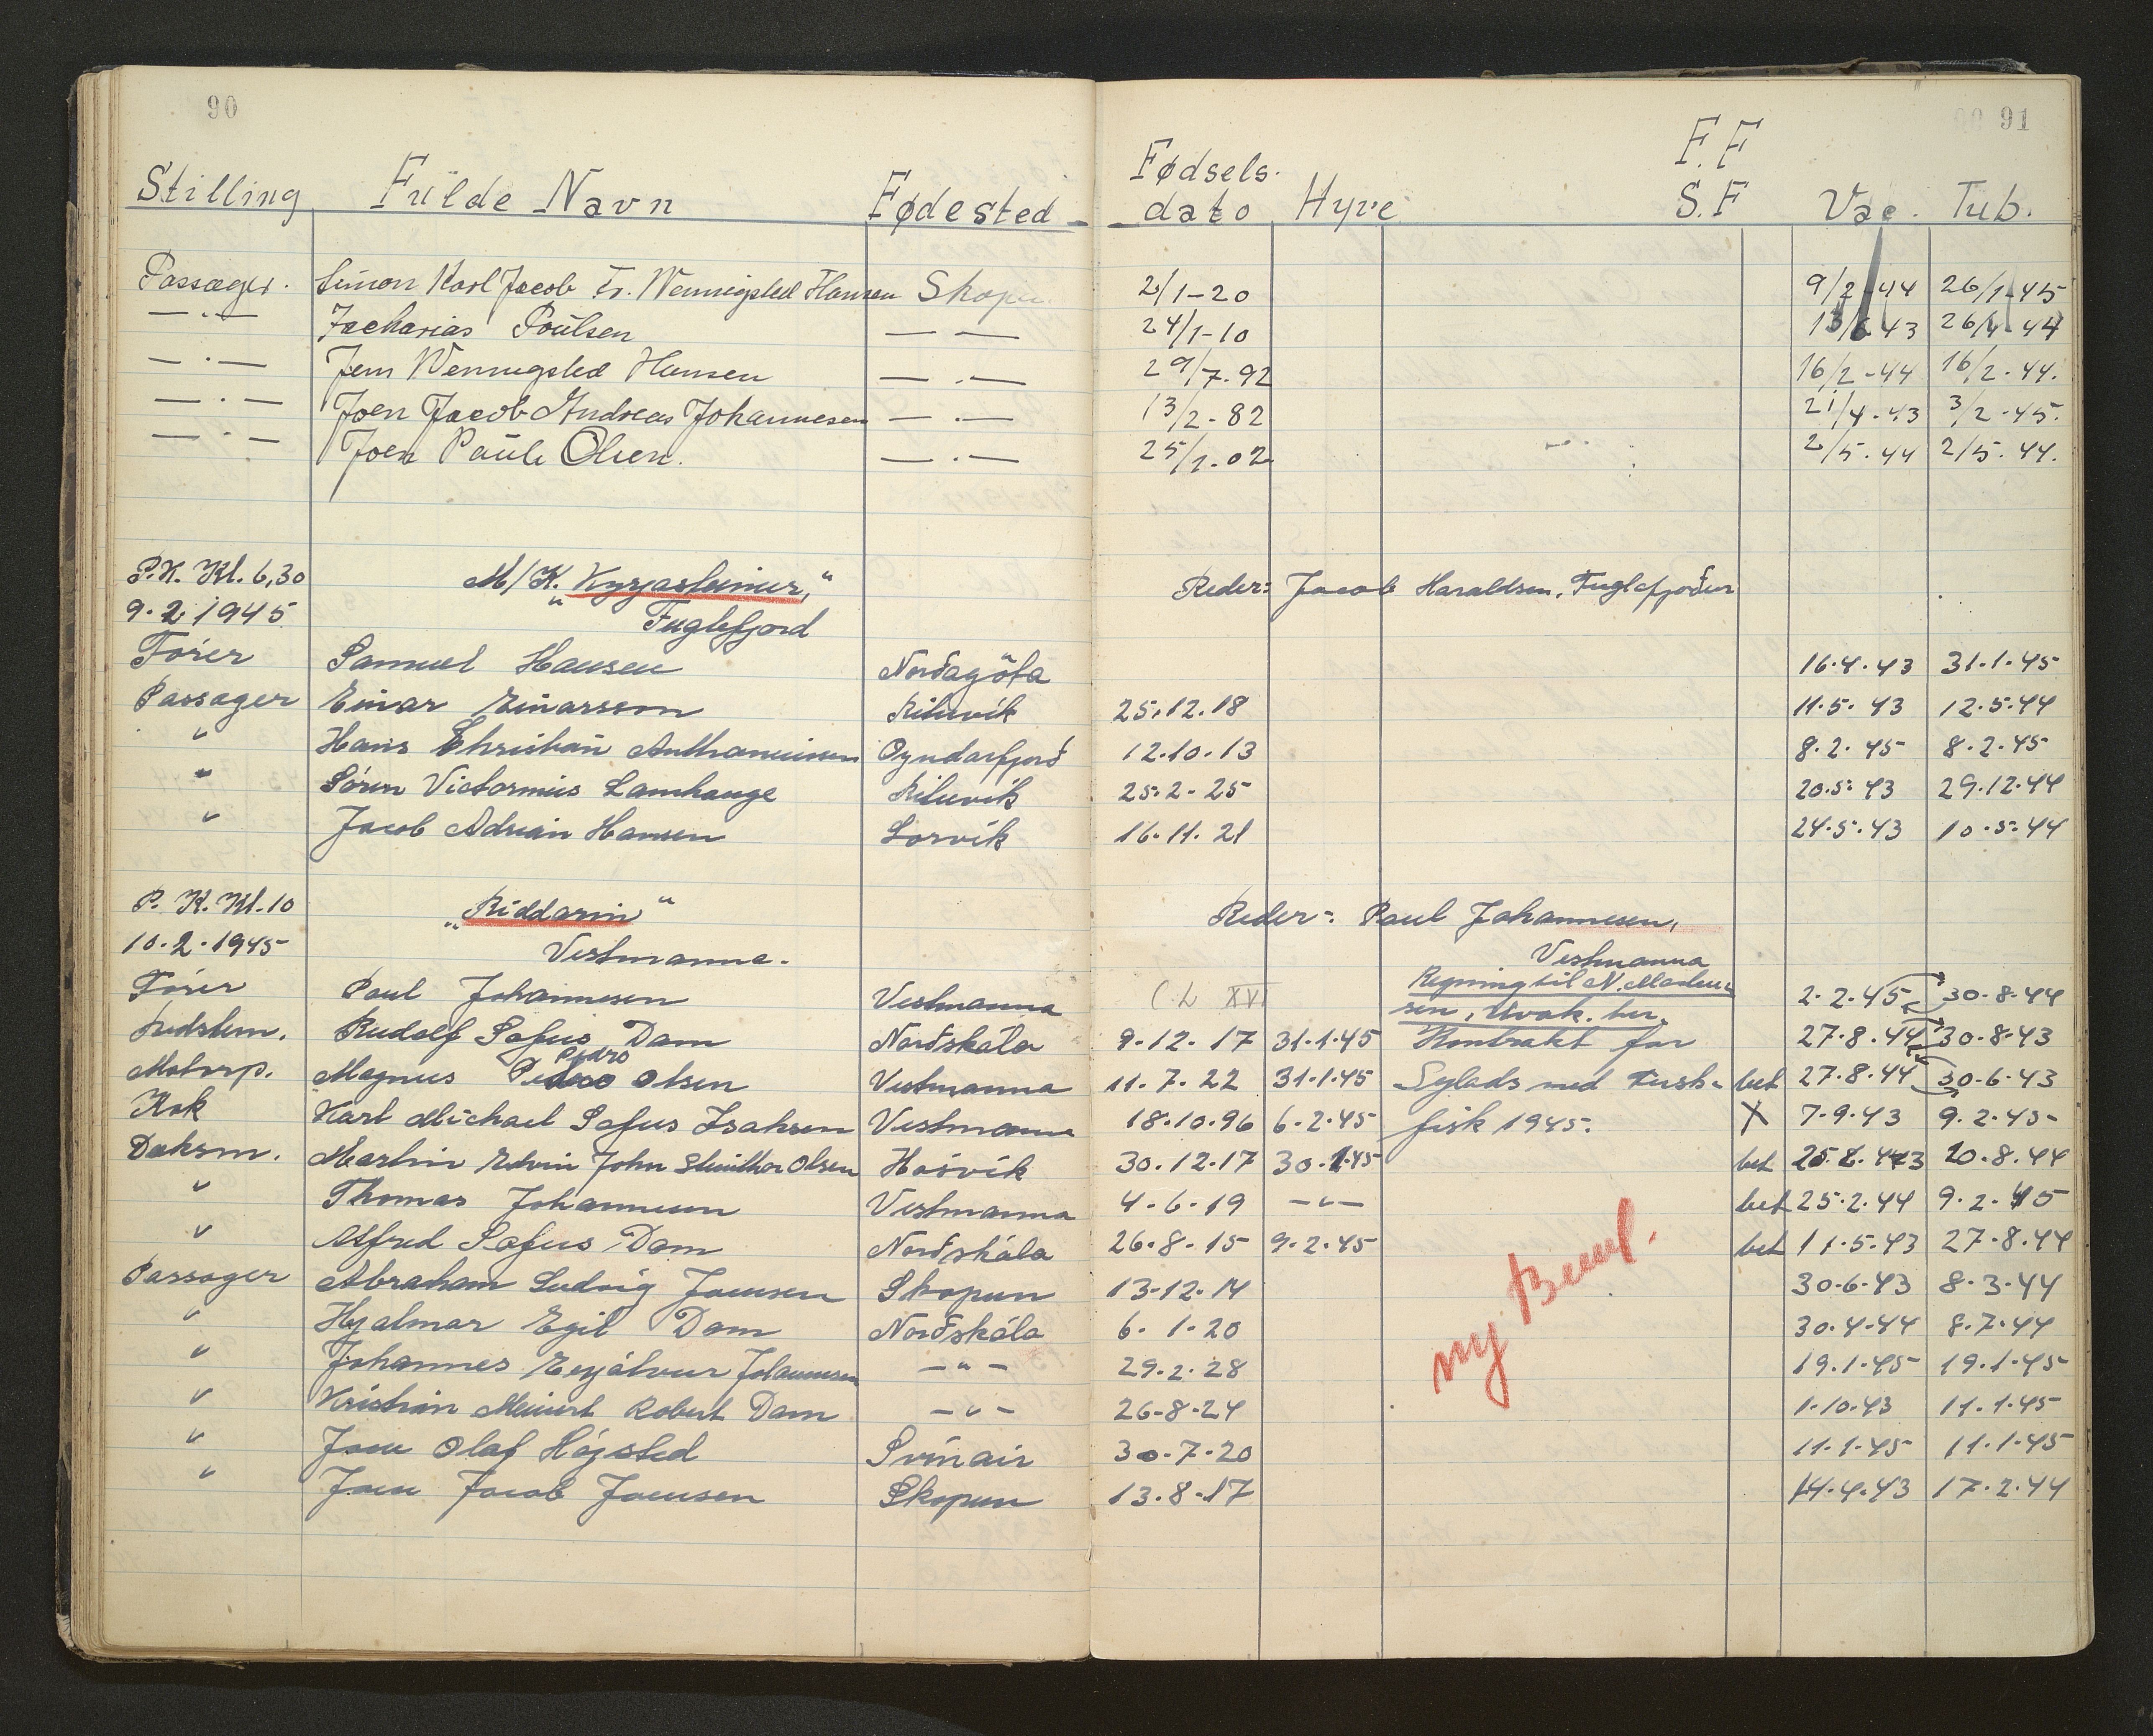 90
91
Stilling Fülde Navn Fødested Fødsels-dato Hyre F.F S.F Vac. Tub.
Passager. Simon Karl Jacob Fr. Wenningsted Hansen Skopu 2/1-20 9/2-44 26/1-45
— . — Zacharias Poülsen — — 24/1-10 13/6 43 26/4-44
— . — Jens Wenningsted Hansen — . — 29/7-92 16/2-44 16/2-44.
— . — Joen Jacob Andreas Johannesen — . — 13/2-82 21/4-43 3/2-45.
— . — Joen Paüli Olsen. — . — 25/1-02 2/5-44 2/5-44.
P.K. Kl. 6,30 M/K. "Kyrjasteinur," Reder: Jacob Haraldsen, Fuglefjøður
9.2 1945 Fuglefjord
Fører Samuel Hansen Norðagøta 16.4.43 31.1.45
Passager Einar Einarsson Rituvík 25.12.18 11.5.43 12.5.44
" Hans Christian Anthoniussen Oyndarfjorð 12.10.13 8.2.45 8.2.45
" Søren Victornius Lamhauge Rituvík 25.2.25 20.5.43 29.12.44
" Jacob Adrian Hansen Lorvík 16.11.21 24.5.43 10.5.44
P. K. Kl. 10 "Riddarin" Reder: Paul Johannesen,
10.2.1945 Vestmanna. Vestmanna
Fører Paul Johannesen Vestmanna Regning til N. 2.2.45 30.8.44
Bedstem. Rudolf Sofus Dam Norðskála 9.12.17 31.1.45 Kontrakt for 27.8.44 30.8.43
Motorp. Magnus Pedro Olsen Vestmanna 11.7.22 31.1.45 Sejlads med fersk- bet 27.8.44 30.6.43
Kok Karl Michael Sofus Isaksen Vestmanna 18.10.96 6.2.45 fisk 1945. X 7.9.43 9.2.45
Daksm. Martin Edvin John Olsen Hósvík 30.12.17 30.1.45 bet 20.8.44
" Thomas Johannesen Vestmanna 4.6.19 — " — bet 25.2.44 9.2.45
" Alfred Sofus Dam Norðskála 26.8.15 9.2.45 bet 11.5.43 27.8.44
Passager Abraham Ludvig Joensen Skopun 13.12.14 30.6.43 8.3.44
" Hjalmar Egil Dam Norðskála 6.1.20 30.4.44 8.7.44
" Johannes Eyjálvur Johannesen — " — 29.2.28 19.1.45 19.1.45
" Kristian Meinert Robert Dam — " — 26.8.24 1.10.43 11.1.45
" Joen Olaf Højsted Svínáir 30.7.20 11.1.45 11.1.45
" Joen Jacob Joensen Skopun 13.8.17 14.4.43 17.2.44
ny